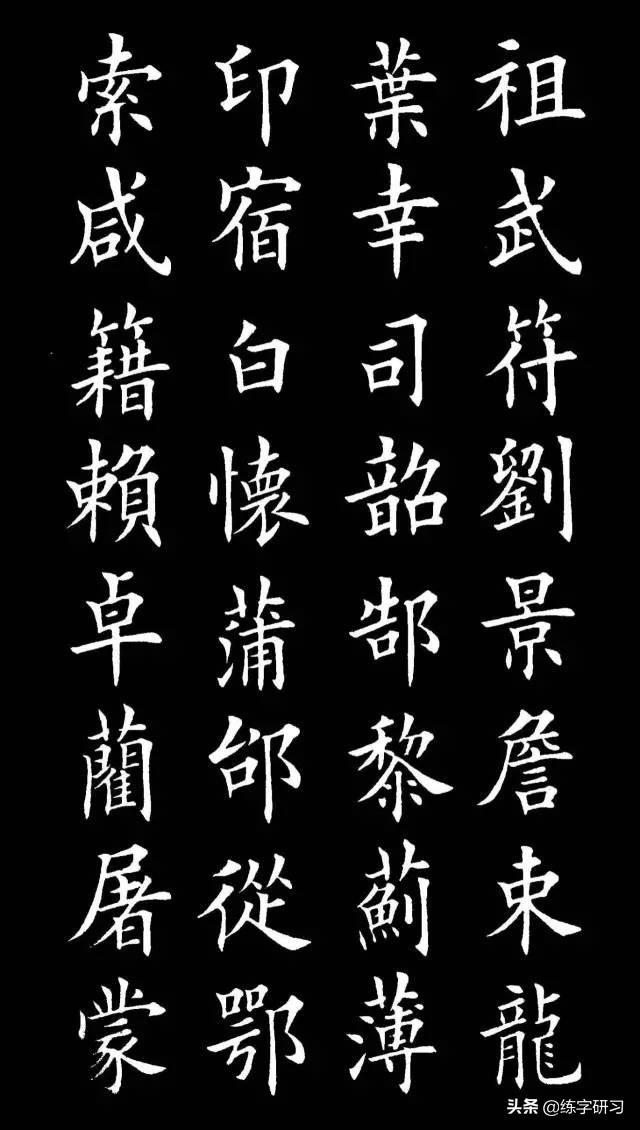 祖武符劉景詹束龍
葉幸司韶郜黎薊薄
印宿白懷蒲邰從鄂
索咸籍賴卓藺屠蒙
头条 @练字研习